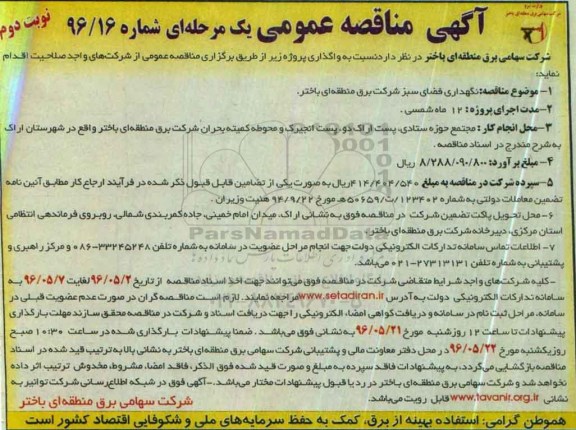 آگهی مناقصه عمومی یک مرحله‌ای شماره ۹۶/۱۶
نوبت دوم
شرکت سهامی برق منطقه‌ای باختر در نظر دارد نسبت به واگذاری پروژه زیر از طریق برگزاری مناقصه عمومی از شرکت‌های واجد صلاحیت اقدام
نماید:
۱- موضوع مناقصه: نگهداری فضای سبز شرکت برق منطقه‌ای باختر.
۲- مدت اجرای پروژه: ۱۲ ماه شمسی.
۳- محل انجام کار: مجتمع حوزه ستادی، پست اراک دو، پست انجیرک و محوطه کمیته بحران شرکت برق منطقه‌ای باختر واقع در شهرستان اراک
به شرح مندرج در اسناد مناقصه.
۴- مبلغ برآورد: ۸/۲۸۸/۰۹۰/۸۰۰ ریال
۵- سپرده شرکت در مناقصه به مبلغ ۴۱۴/۴۰۴/۵۴۰ ریال به صورت یکی از تضامین قابل قبول ذکر شده در فرآیند ارجاع کار مطابق آئین نامه
تضمین معاملات دولتی به شماره ۱۲۳۴۰۲/ت۵۰۶۵۹هـ مورخ ۹۴/۹/۲۲ هیئت وزیران.
۶- محل تحویل پاکت تضمین شرکت در مناقصه فوق به نشانی اراک، میدان امام خمینی، جاده کمربندی شمالی، روبروی فرماندهی انتظامی
استان مرکزی، دبیرخانه شرکت برق منطقه‌ای باختر.
۷- اطلاعات تماس سامانه تدارکات الکترونیکی دولت جهت انجام مراحل عضویت در سامانه به شماره تلفن ۳۳۲۴۵۲۴۸-۰۸۶ و مرکز راهبری و
پشتیبانی به شماره تلفن ۲۷۳۱۳۱۳۱-۰۲۱ می‌باشد.
- کلیه شرکت‌های واجد شرایط متقاضی شرکت در مناقصه فوق می‌توانند جهت اخذ اسناد مناقصه از تاریخ ۹۶/۰۵/۲ لغایت ۹۶/۰۵/۷ به
سامانه تدارکات الکترونیکی دولت به آدرس www.setadiran.ir مراجعه نمایند. لازم است مناقصه گران در صورت عدم عضویت قبلی در
سامانه، مراحل ثبت نام در سامانه و دریافت گواهی امضاء الکترونیکی را جهت دریافت اسناد و شرکت در مناقصه محقق سازند مهلت بارگذاری
پیشنهادات تا ساعت ۱۲ روز شنبه مورخ ۹۶/۰۵/۲۱ به نشانی فوق می‌باشد. ضمنا پیشنهادات بارگذاری شده در ساعت ۱۰:۳۰ صبح
روز یکشنبه مورخ ۹۶/۰۵/۲۲ در محل دفتر معاونت مالی و پشتیبانی شرکت سهامی برق منطقه‌ای باختر به نشانی بالا به ترتیب قید شده در اسناد
مناقصه بازگشایی می‌گردد، به پیشنهادات فاقد سپرده به مبلغ و صورت قید شده فوق الذکر، فاقد امضا، مشروط، مخدوش ترتیب اثر داده
نخواهد شد و شرکت سهامی برق منطقه‌ای باختر در رد یا قبول پیشنهادات مختار می‌باشد. - آگهی فوق در شبکه اطلاع رسانی شرکت توانیر به
نشانی www.tavanir.org.ir قابل رویت می‌باشد.
شرکت سهامی برق منطقه‌ای باختر
هموطن گرامی: استفاده بهینه از برق، کمک به حفظ سرمایه‌های ملی و شکوفایی اقتصاد کشور است